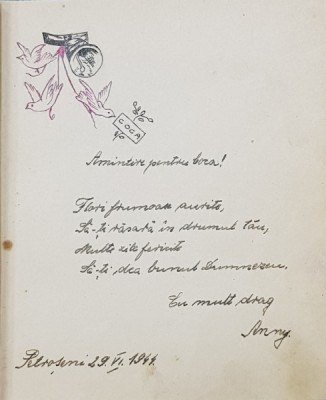 COCA
Amintire pentru Coca!
Flori frumoase aurite,
Să-ți răsară în drumul tău,
Multe zile fericite
Să-ți dea bunul Dumnezeu.
Cu mult drag
Anny.
Petroșeni 29.VI.1944.